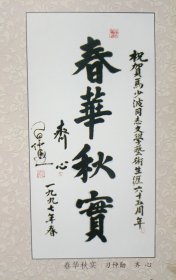 祝賀馬少波同志文學藝術生涯六十五周年
春華秋實
齊心
一九九七年春
春华秋实 习仲勋 齐心